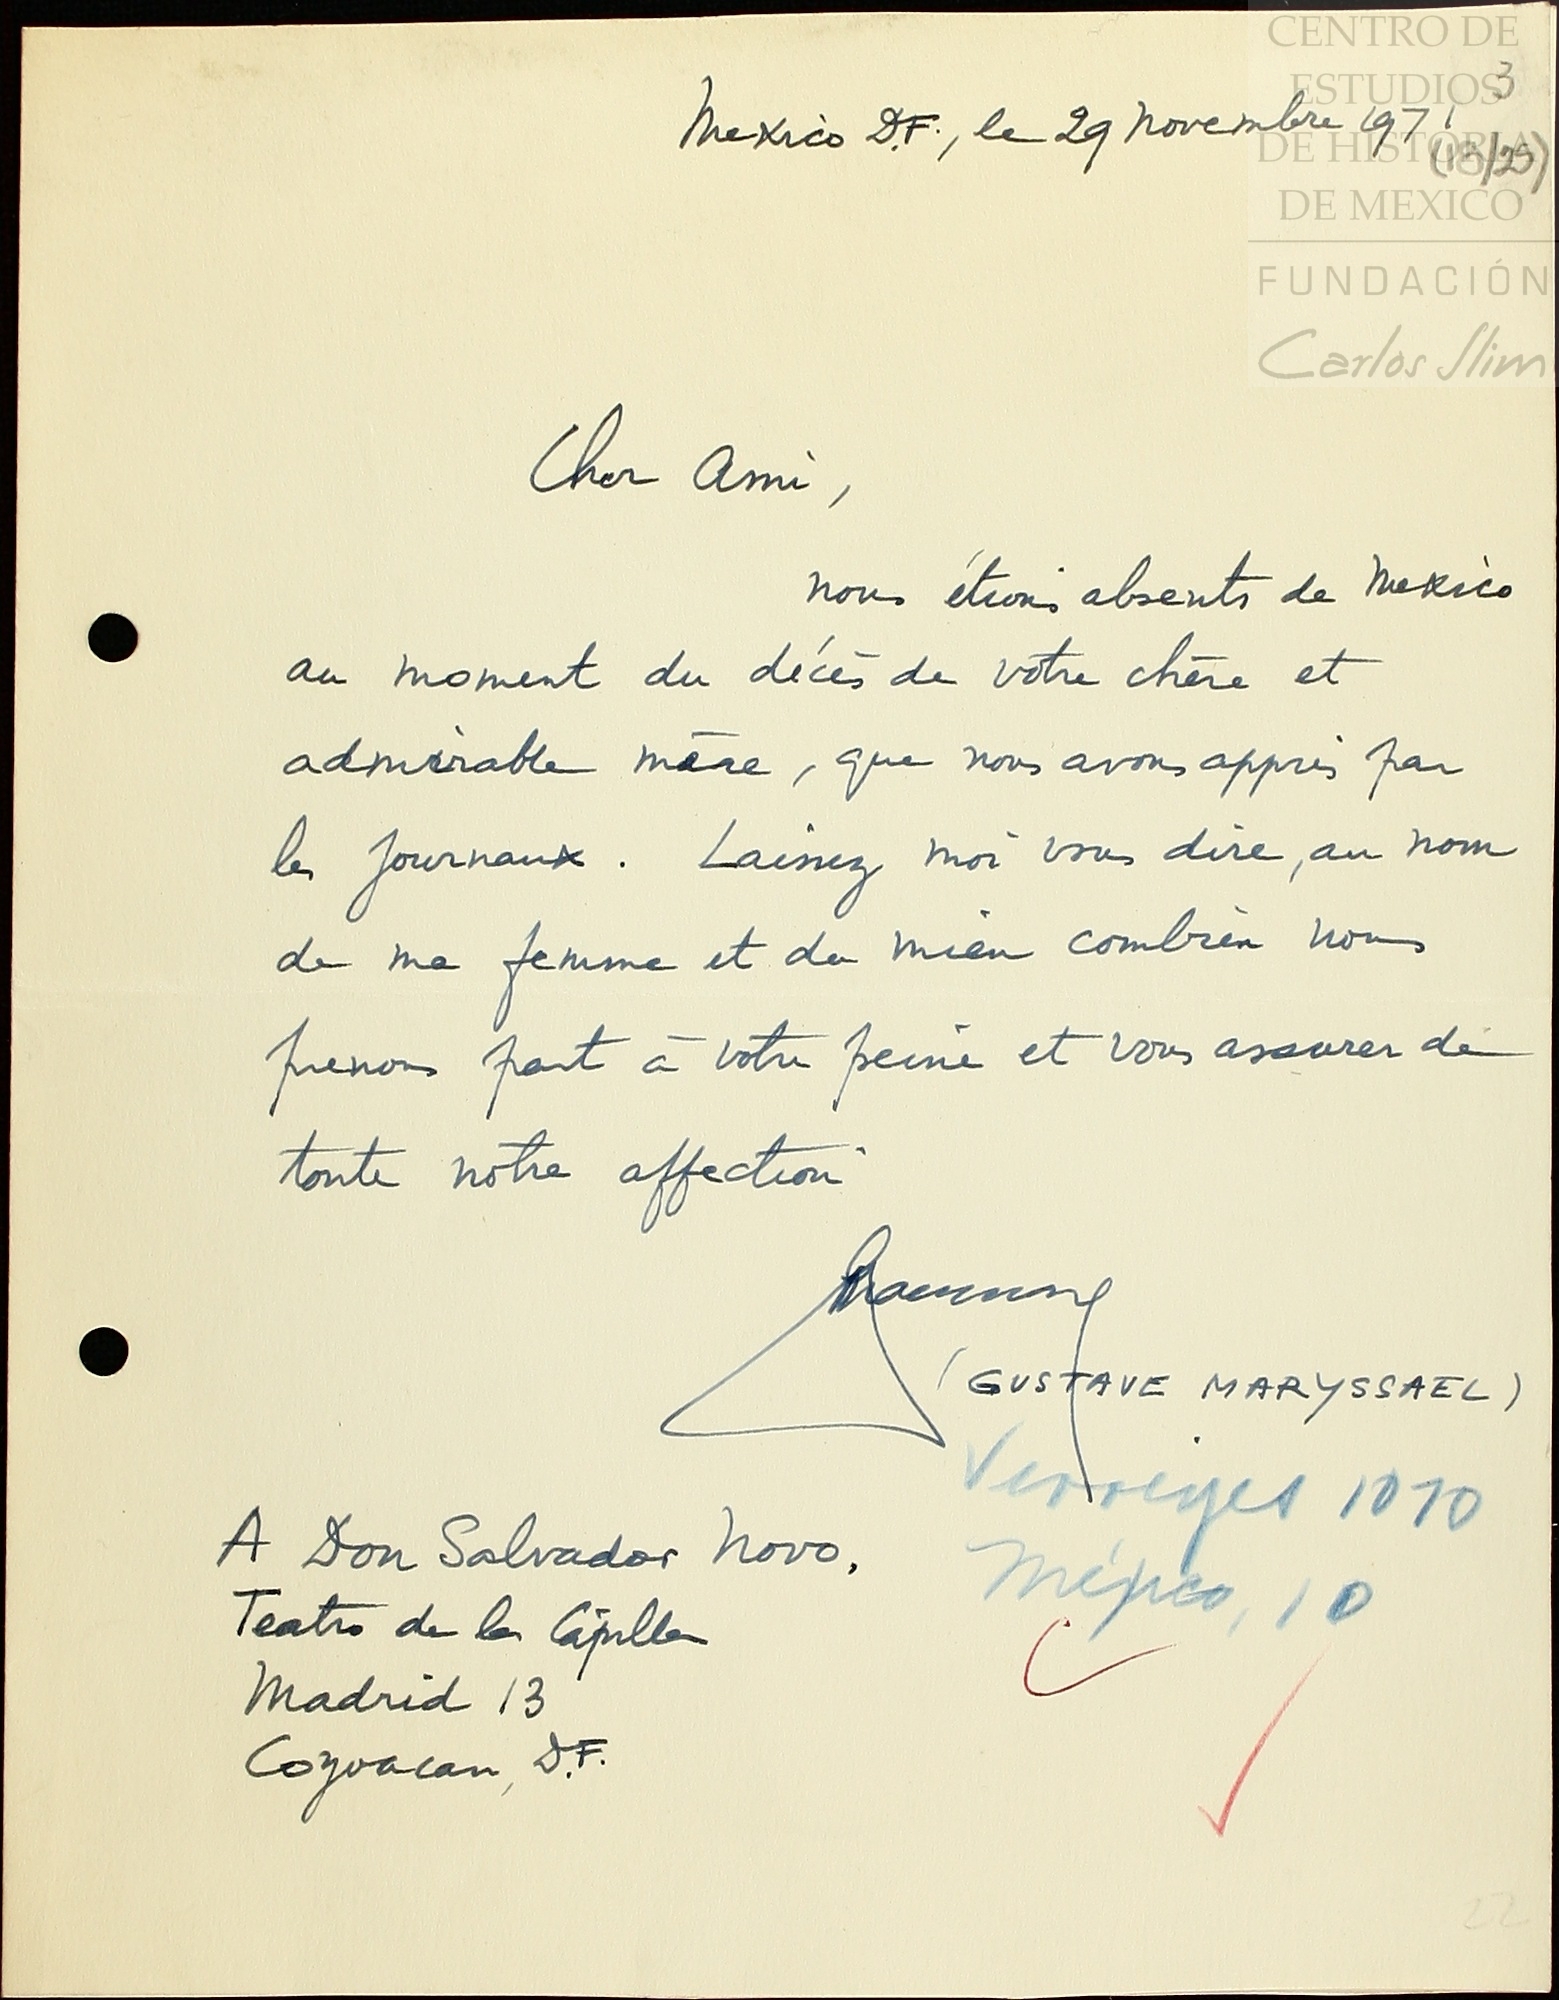 CENTRO DE
ESTUDIOS
DE HISTORIA
DE MEXICO
FUNDACIÓN
Carlos Slim
3
(18/25)
Mexico D.F., le 29 novembre 1971
Cher Ami,
nous étions absents de Mexico
au moment du décès de votre chère et
admirable mère, que nous avons appris par
les journaux. Laissez moi vous dire, au nom
de ma femme et du mien combien nous
prenons part à votre peine et vous assurer de
toute notre affection
(GUSTAVE MARYSSAEL)
Virreyes 1010
Méjico, 10
A Don Salvador Novo,
Teatro de la Capilla
Madrid 13
Coyoacan, D.F.
22